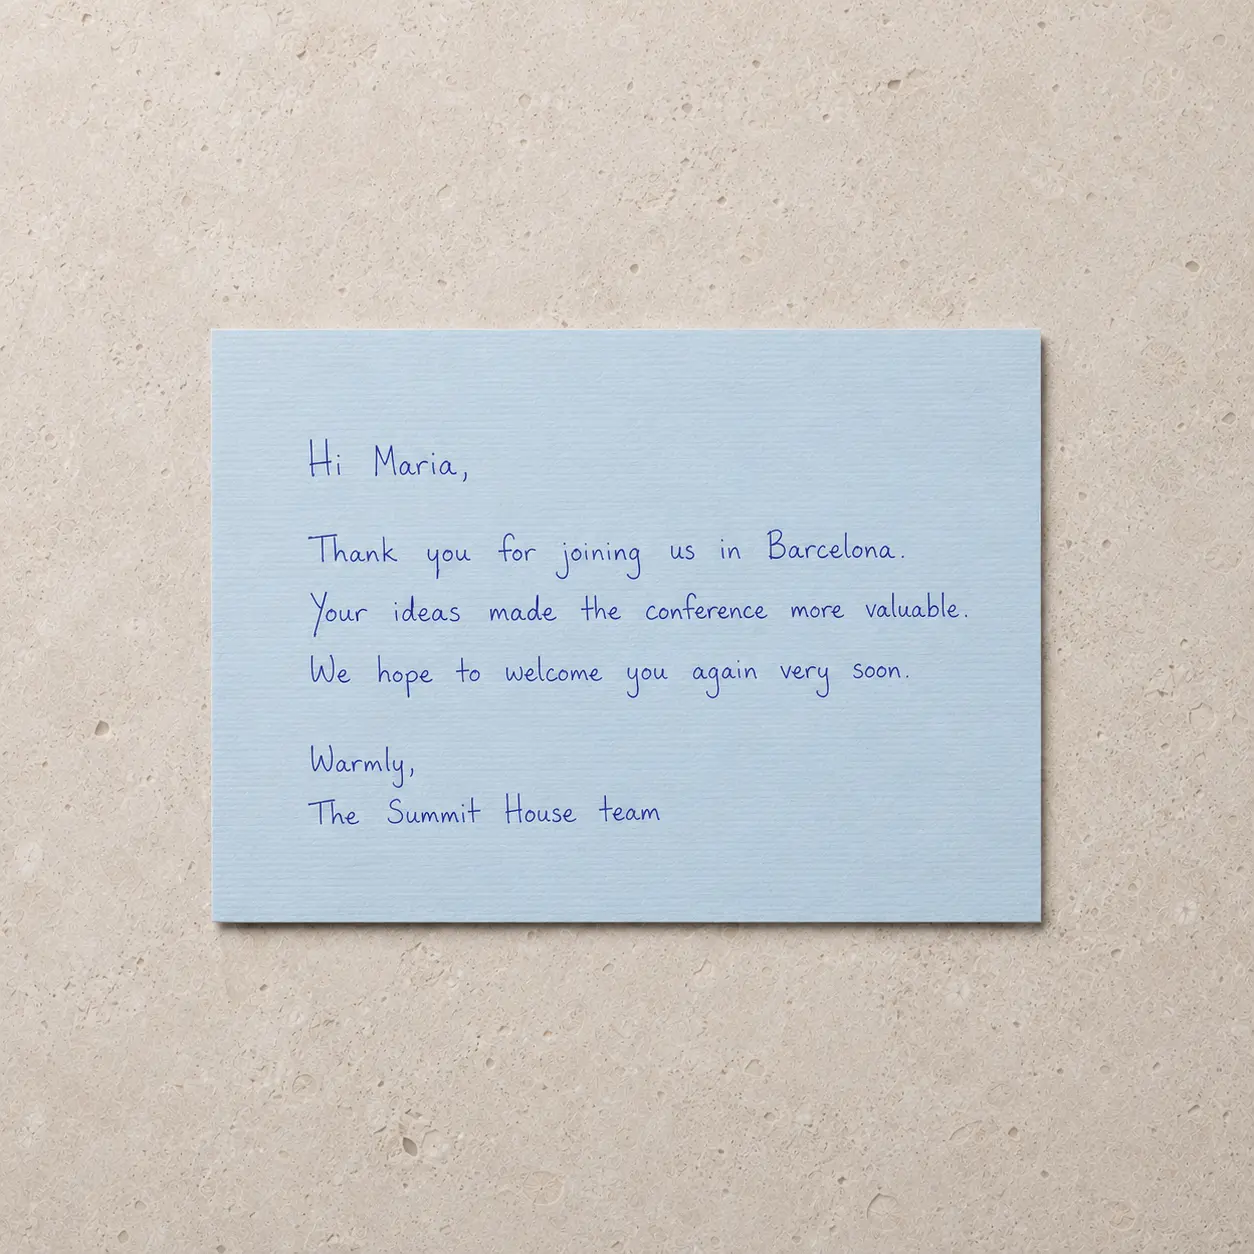 Hi Maria,
Thank you for joining us in Barcelona.
Your ideas made the conference more valuable.
We hope to welcome you again very soon.
Warmly,
The Summit House team